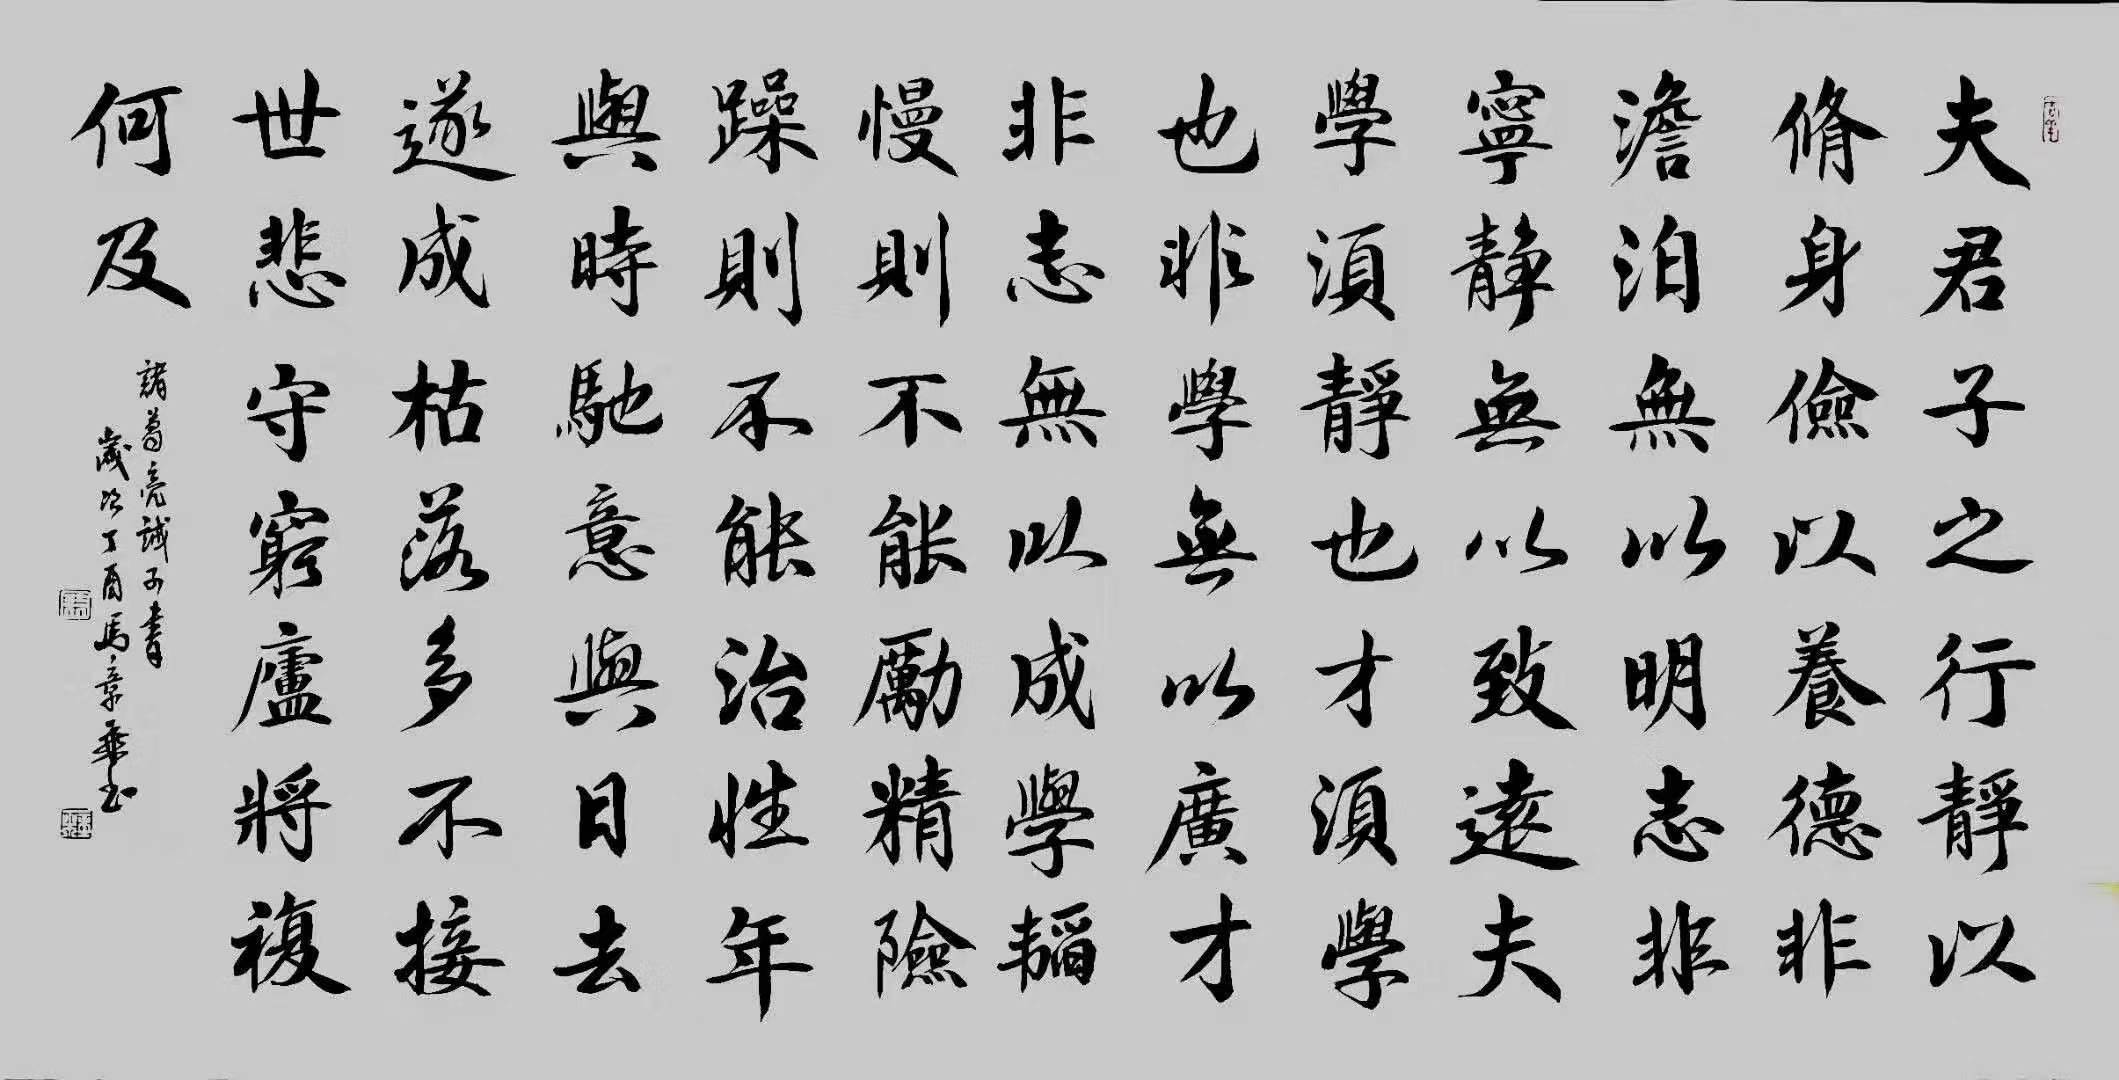 夫君子之行靜以
脩身儉以養德非
澹泊無以明志非
寧静無以致遠夫
學須靜也才須學
也非學無以廣才
非志無以成學韬
慢則不能勵精險
躁則不能治性年
與時馳意與日去
遂成枯落多不接
世悲守窮廬將複
何及
諸葛亮誡子書
歲次丁酉馬章乘书